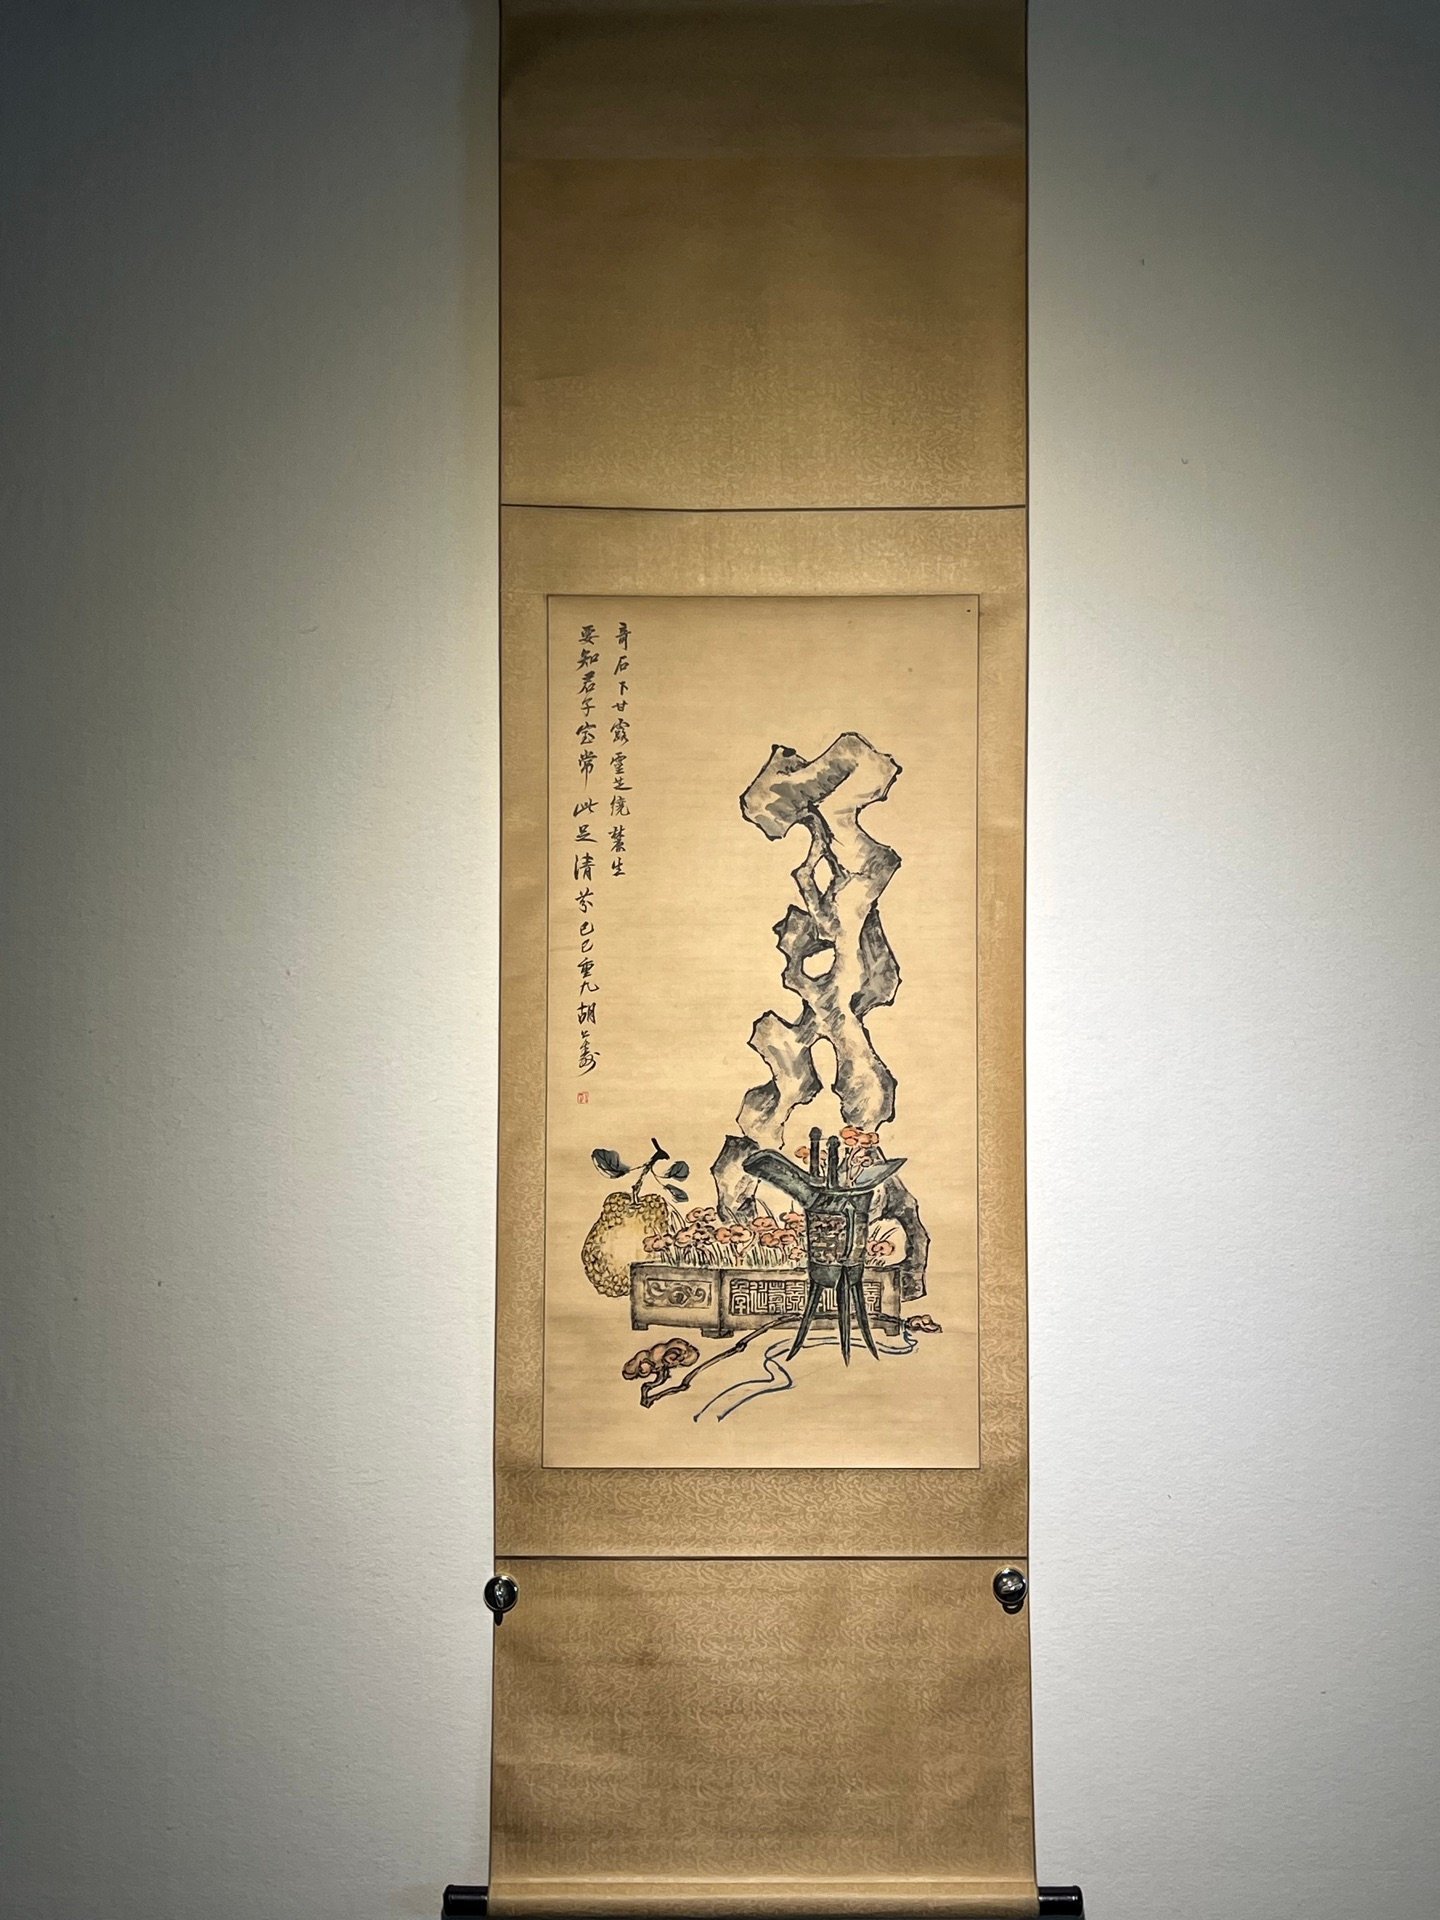 奇石下甘露靈芝繞叢生
要知君子室常此足清芬己巳重九胡公壽